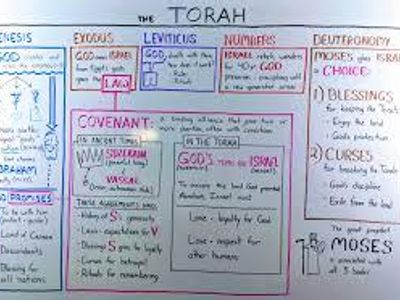 THE TORAH
ENESIS
GOD
ABRAHAM
PROMISES
To be with him
Land of Canaan
Descendants
Blessing for
all nations
EXODUS
GOD ISRAEL
LAW
LEVITICUS
GOD dwells with them
NUMBERS
ISRAEL rebels, wanders
for 40 yr. GOD
a new generation
DEUTERONOMY
MOSES gives ISRA
= CHOICE:
1) BLESSINGS
for keeping the Torah
- Enjoy the land
- God's protection
2) CURSES
for breaking the Torah
- God's discipline
- Exile from the land
The great prophet
MOSES
is associated with
all 5 books
COVENANT: A binding alliance that joins two or
more parties, often with conditions
IN ANCIENT TIMES
SUZERAIN
VASSAL
These agreements had:
- History of S's generosity
- Laws + expectations for V
- Blessings S gives for loyalty
- Curses for betrayal
- Rituals for remembering
IN THE TORAH
GOD'S terms for ISRAEL
To occupy the land God promised
Abraham, Israel must:
Love + loyalty for God
Love + respect for
other humans